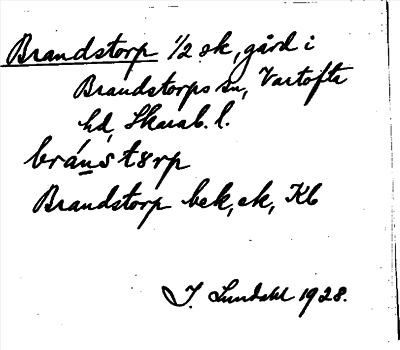 Brandstorp 1/2 sk, gård i
Brandstorps sn, Vartofta
hd, Skarab. l.
bránstørp
Brandstorp bek, ek, Kb
I. Lundahl 1928.